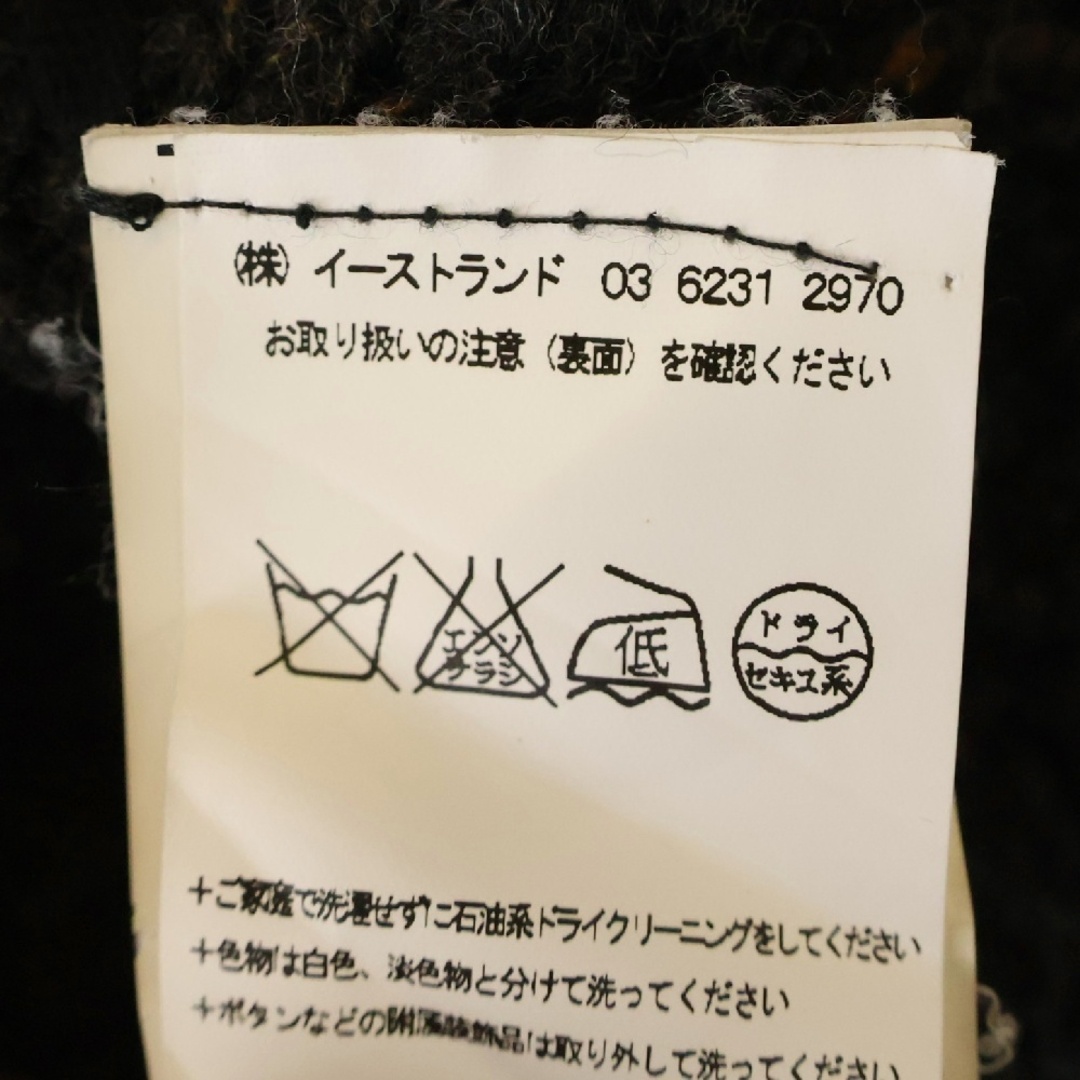 (株) イーストランド 03 6231 2970
お取り扱いの注意（裏面）を確認ください
エンソ
サラシ
低
ドライ
セキユ系
+ご家庭で洗濯せずに石油系ドライクリーニングをしてください
+色物は白色、淡色物と分けて洗ってください
+ボタンなどの附属装飾品は取り外して洗ってください